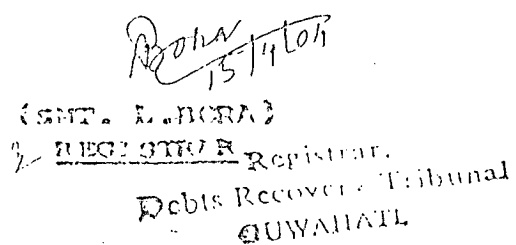 15/4/04
(SMT. L. BORA)
REGISTRAR
Registrar,
Debts Recovery Tribunal
GUWAHATI